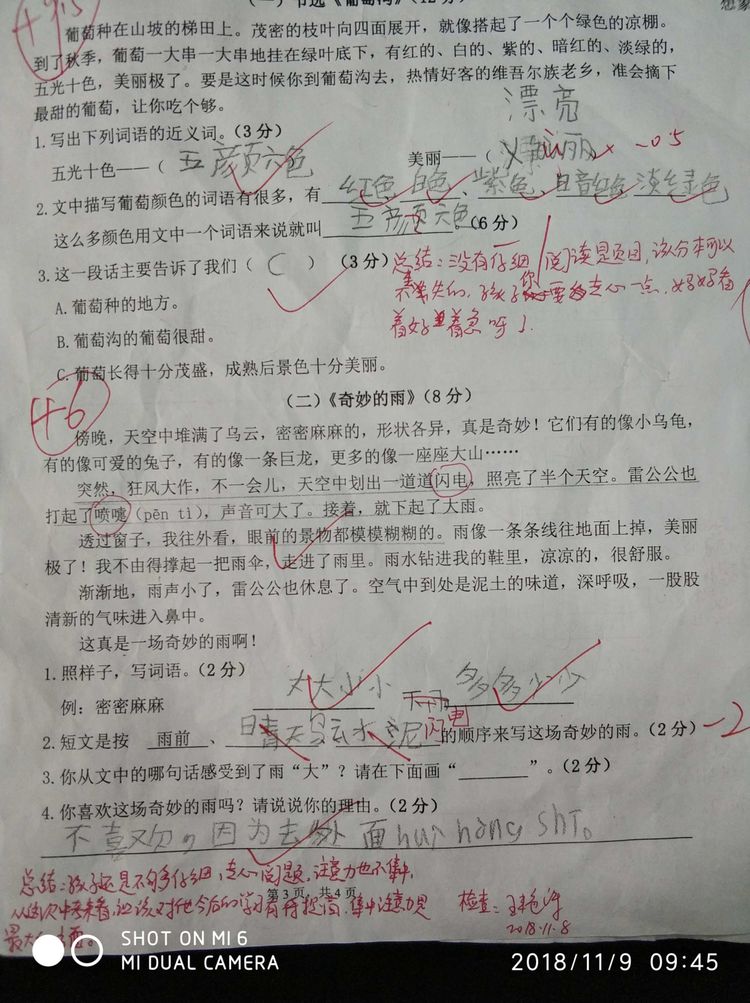 +9.5
（一）节选《葡萄沟》（12分）
想象
葡萄种在山坡的梯田上。茂密的枝叶向四面展开，就像搭起了一个个绿色的凉棚。
到了秋季，葡萄一大串一大串地挂在绿叶底下，有红的、白的、紫的、暗红的、淡绿的，
五光十色，美丽极了。要是这时候你到葡萄沟去，热情好客的维吾尔族老乡，准会摘下
最甜的葡萄，让你吃个够。
漂亮
1.写出下列词语的近义词。（3分）
五光十色——（ 五颜六色
美丽——（
-0.5
2.文中描写葡萄颜色的词语有很多，有 红色、白色、紫色、暗红色 淡绿色
这么多颜色用文中一个词语来说就叫 五颜六色 。（6分）
3.这一段话主要告诉了我们（ C ）（3分）
总结：没有仔细阅读题目，该分本可以
不丢失的，孩子你要走心一点，好好看
着好着急呀！
A.葡萄种的地方。
B.葡萄沟的葡萄很甜。
C.葡萄长得十分茂盛，成熟后景色十分美丽。
+6
（二）《奇妙的雨》（8分）
傍晚，天空中堆满了乌云，密密麻麻的，形状各异，真是奇妙！它们有的像小乌龟，
有的像可爱的兔子，有的像一条巨龙，更多的像一座座大山……
突然，狂风大作，不一会儿，天空中划出一道道闪电，照亮了半个天空。雷公公也
打起了喷嚏（pēn tì），声音可大了。接着，就下起了大雨。
透过窗子，我往外看，眼前的景物都模模糊糊的。雨像一条条线往地面上掉，美丽
极了！我不由得撑起一把雨伞，走进了雨里。雨水钻进我的鞋里，凉凉的，很舒服。
渐渐地，雨声小了，雷公公也休息了。空气中到处是泥土的味道，深呼吸，一股股
清新的气味进入鼻中。
这真是一场奇妙的雨啊！
1.照样子，写词语。（2分）
例：密密麻麻 大大小小 多多少少
2.短文是按 雨前 、 晴天乌云水 闪电 的顺序来写这场奇妙的雨。（2分） -2
3.你从文中的哪句话感受到了雨“大”？请在下面画“______”。（2分）
4.你喜欢这场奇妙的雨吗？请说说你的理由。（2分）
不喜欢，因为去外面hui hāng shī。
总结：孩子还是不够仔细，走心阅题，注意力也不集中，
第3页，共4页
检查：
2018.11.8
SHOT ON MI 6
MI DUAL CAMERA
2018/11/9 09:45